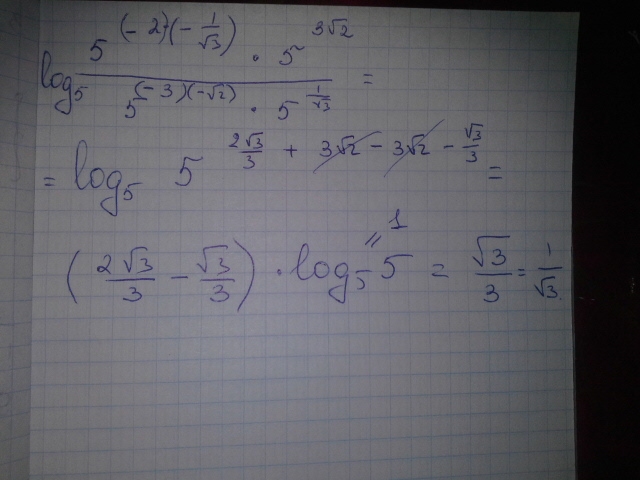 log₅ (5^((-2)(-1/√3)) · 5^(3√2)) / (5^((-3)(-√2)) · 5^(1/√3)) =
= log₅ 5^(2√3/3 + 3√2 - 3√2 - √3/3) =
(2√3/3 - √3/3) · log₅ 5 = √3/3 = 1/√3.
= 1